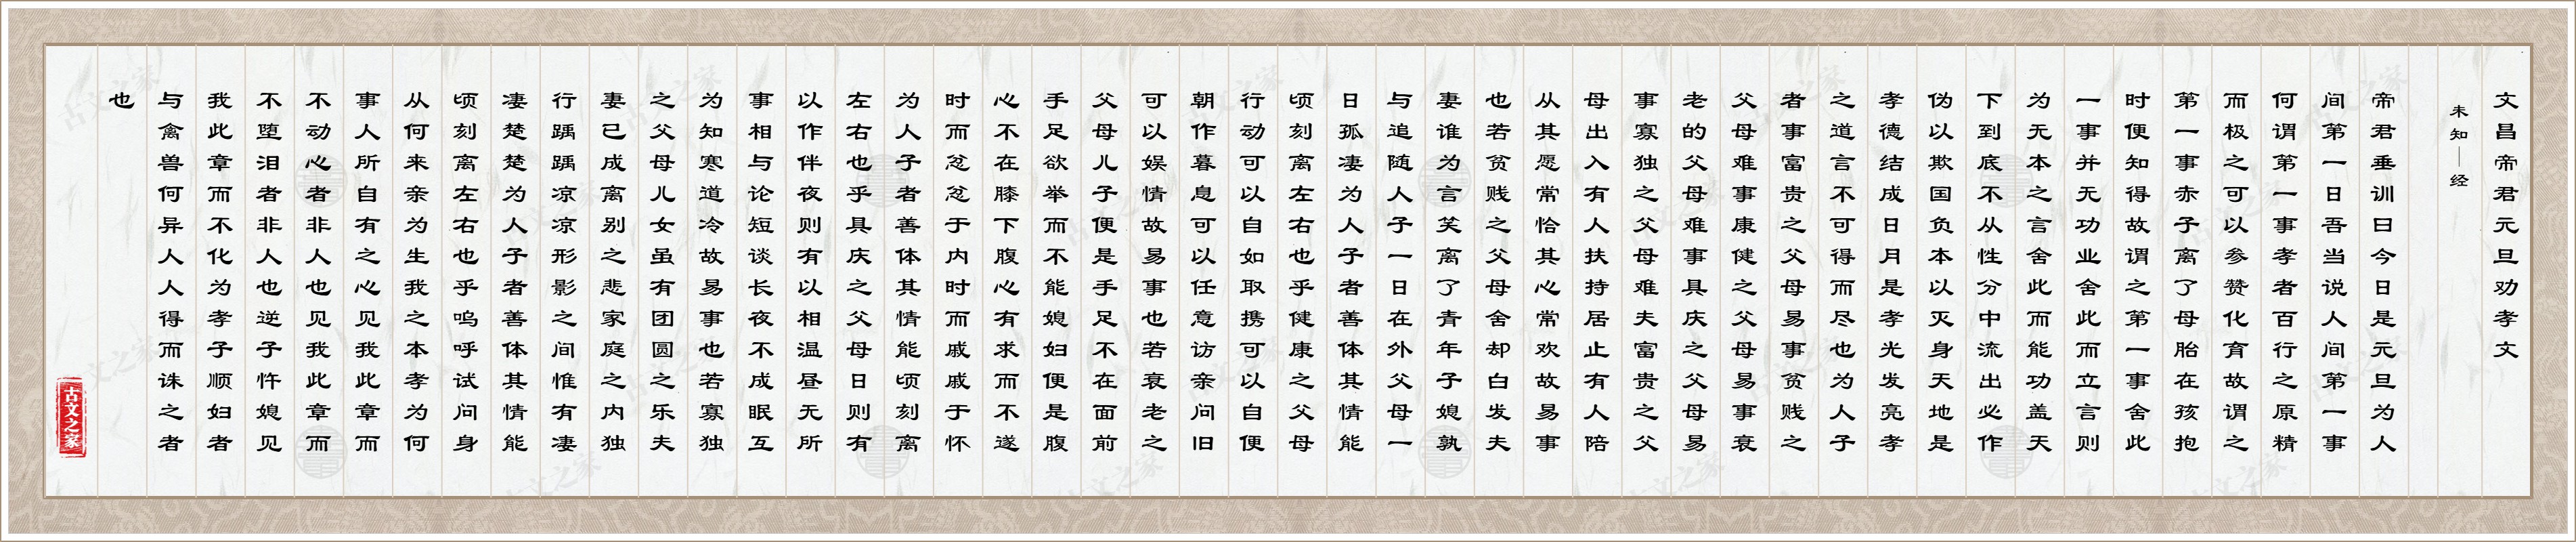 文昌帝君元旦劝孝文
未知—经
帝君垂训曰今日是元旦为人
间第一日吾当说人间第一事
何谓第一事孝者百行之原精
而极之可以参赞化育故谓之
第一事赤子离了母胎在孩抱
时便知得故谓之第一事舍此
一事并无功业舍此而立言则
为无本之言舍此而能功盖天
下到底不从性分中流出必作
伪以欺国负本以灭身天地是
孝德结成日月是孝光发亮孝
之道言不可得而尽也为人子
者事富贵之父母易事贫贱之
父母难事康健之父母易事衰
老的父母难事具庆之父母易
事寡独之父母难夫富贵之父
母出入有人扶持居止有人陪
从其愿常恰其心常欢故易事
也若贫贱之父母舍却白发夫
妻谁为言笑离了青年子媳孰
与追随人子一日在外父母一
日孤凄为人子者善体其情能
顷刻离左右也乎健康之父母
行动可以自如取携可以自便
朝作暮息可以任意访亲问旧
可以娱情故易事也若衰老之
父母儿子便是手足不在面前
手足欲举而不能媳妇便是腹
心不在膝下腹心有求而不遂
时而忿忿于内时而戚戚于怀
为人子者善体其情能顷刻离
左右也乎具庆之父母日则有
以作伴夜则有以相温昼无所
事相与论短谈长夜不成眠互
为知寒道冷故易事也若寡独
之父母儿女虽有团圆之乐夫
妻已成离别之悲家庭之内独
行踽踽凉凉形影之间惟有凄
凄楚楚为人子者善体其情能
顷刻离左右也乎呜呼试问身
从何来亲为生我之本孝为何
事人所自有之心见我此章而
不动心者非人也见我此章而
不堕泪者非人也逆子忤媳见
我此章而不化为孝子顺妇者
与禽兽何异人人得而诛之者
也
古文之家